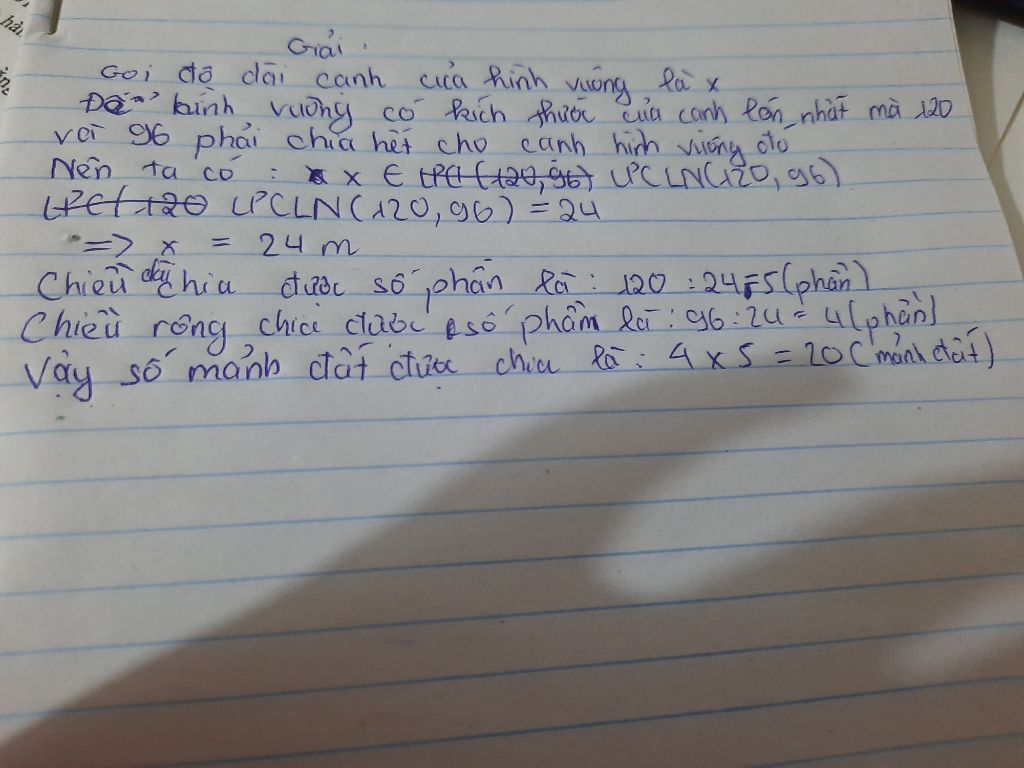 Giải.
Gọi độ dài cạnh của hình vuông là x
Để hình vuông có kích thước của cạnh lớn nhất mà 120
và 96 phải chia hết cho cạnh hình vuông đó
Nên ta có : x ∈ ƯCLN(120,96)
ƯCLN(120,96) = 24
=> x = 24 m
Chiều dài chia được số phần là : 120 : 24 = 5(phần)
Chiều rộng chia được số phần là : 96 : 24 = 4(phần)
Vậy số mảnh đất được chia là : 4 x 5 = 20(mảnh đất)